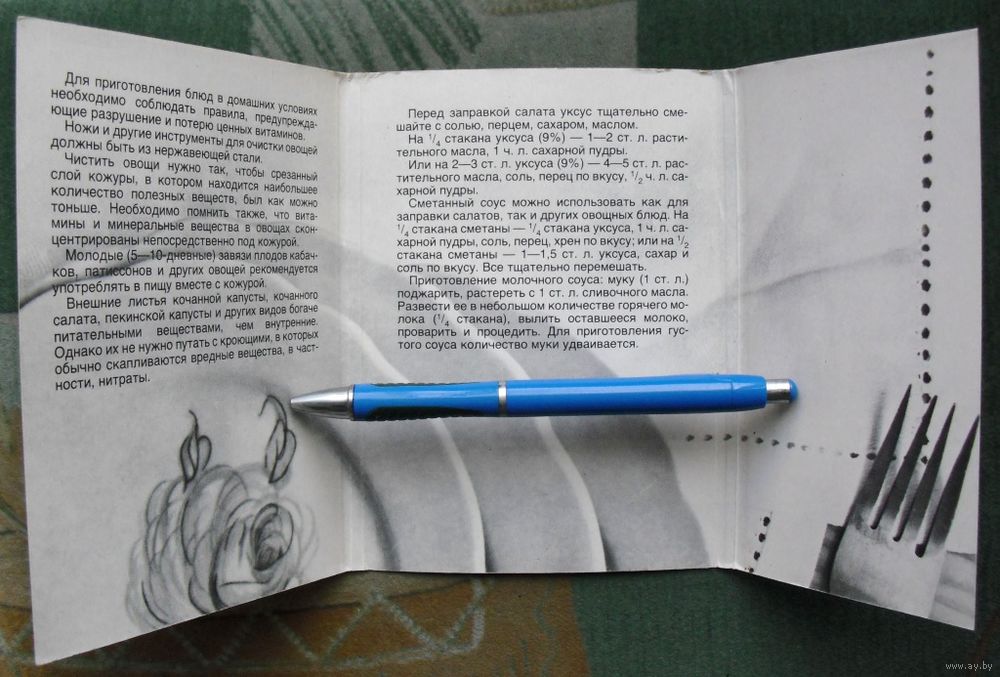 Для приготовления блюд в домашних условиях
необходимо соблюдать правила, предупрежда-
ющие разрушение и потерю ценных витаминов.
Ножи и другие инструменты для очистки овощей
должны быть из нержавеющей стали.
Чистить овощи нужно так, чтобы срезанный
слой кожуры, в котором находится наибольшее
количество полезных веществ, был как можно
тоньше. Необходимо помнить также, что вита-
мины и минеральные вещества в овощах скон-
центрированы непосредственно под кожурой.
Молодые (5—10-дневные) завязи плодов кабач-
ков, патиссонов и других овощей рекомендуется
употреблять в пищу вместе с кожурой.
Внешние листья кочанной капусты, кочанного
салата, пекинской капусты и других видов богаче
питательными веществами, чем внутренние.
Однако их не нужно путать с кроющими, в которых
обычно скапливаются вредные вещества, в част-
ности, нитраты.
Перед заправкой салата уксус тщательно сме-
шайте с солью, перцем, сахаром, маслом.
На 1/4 стакана уксуса (9%) — 1—2 ст. л. расти-
тельного масла, 1 ч. л. сахарной пудры.
Или на 2—3 ст. л. уксуса (9%) — 4—5 ст. л. рас-
тительного масла, соль, перец по вкусу, 1/2 ч. л. са-
харной пудры.
Сметанный соус можно использовать как для
заправки салатов, так и других овощных блюд. На
1/4 стакана сметаны — 1/4 стакана уксуса, 1 ч. л. са-
харной пудры, соль, перец, хрен по вкусу; или на 1/2
стакана сметаны — 1—1,5 ст. л. уксуса, сахар и
соль по вкусу. Все тщательно перемешать.
Приготовление молочного соуса: муку (1 ст. л.)
поджарить, растереть с 1 ст. л. сливочного масла.
Развести ее в небольшом количестве горячего мо-
лока (1/4 стакана), вылить оставшееся молоко,
проварить и процедить. Для приготовления гус-
того соуса количество муки удваивается.
www.ay.by